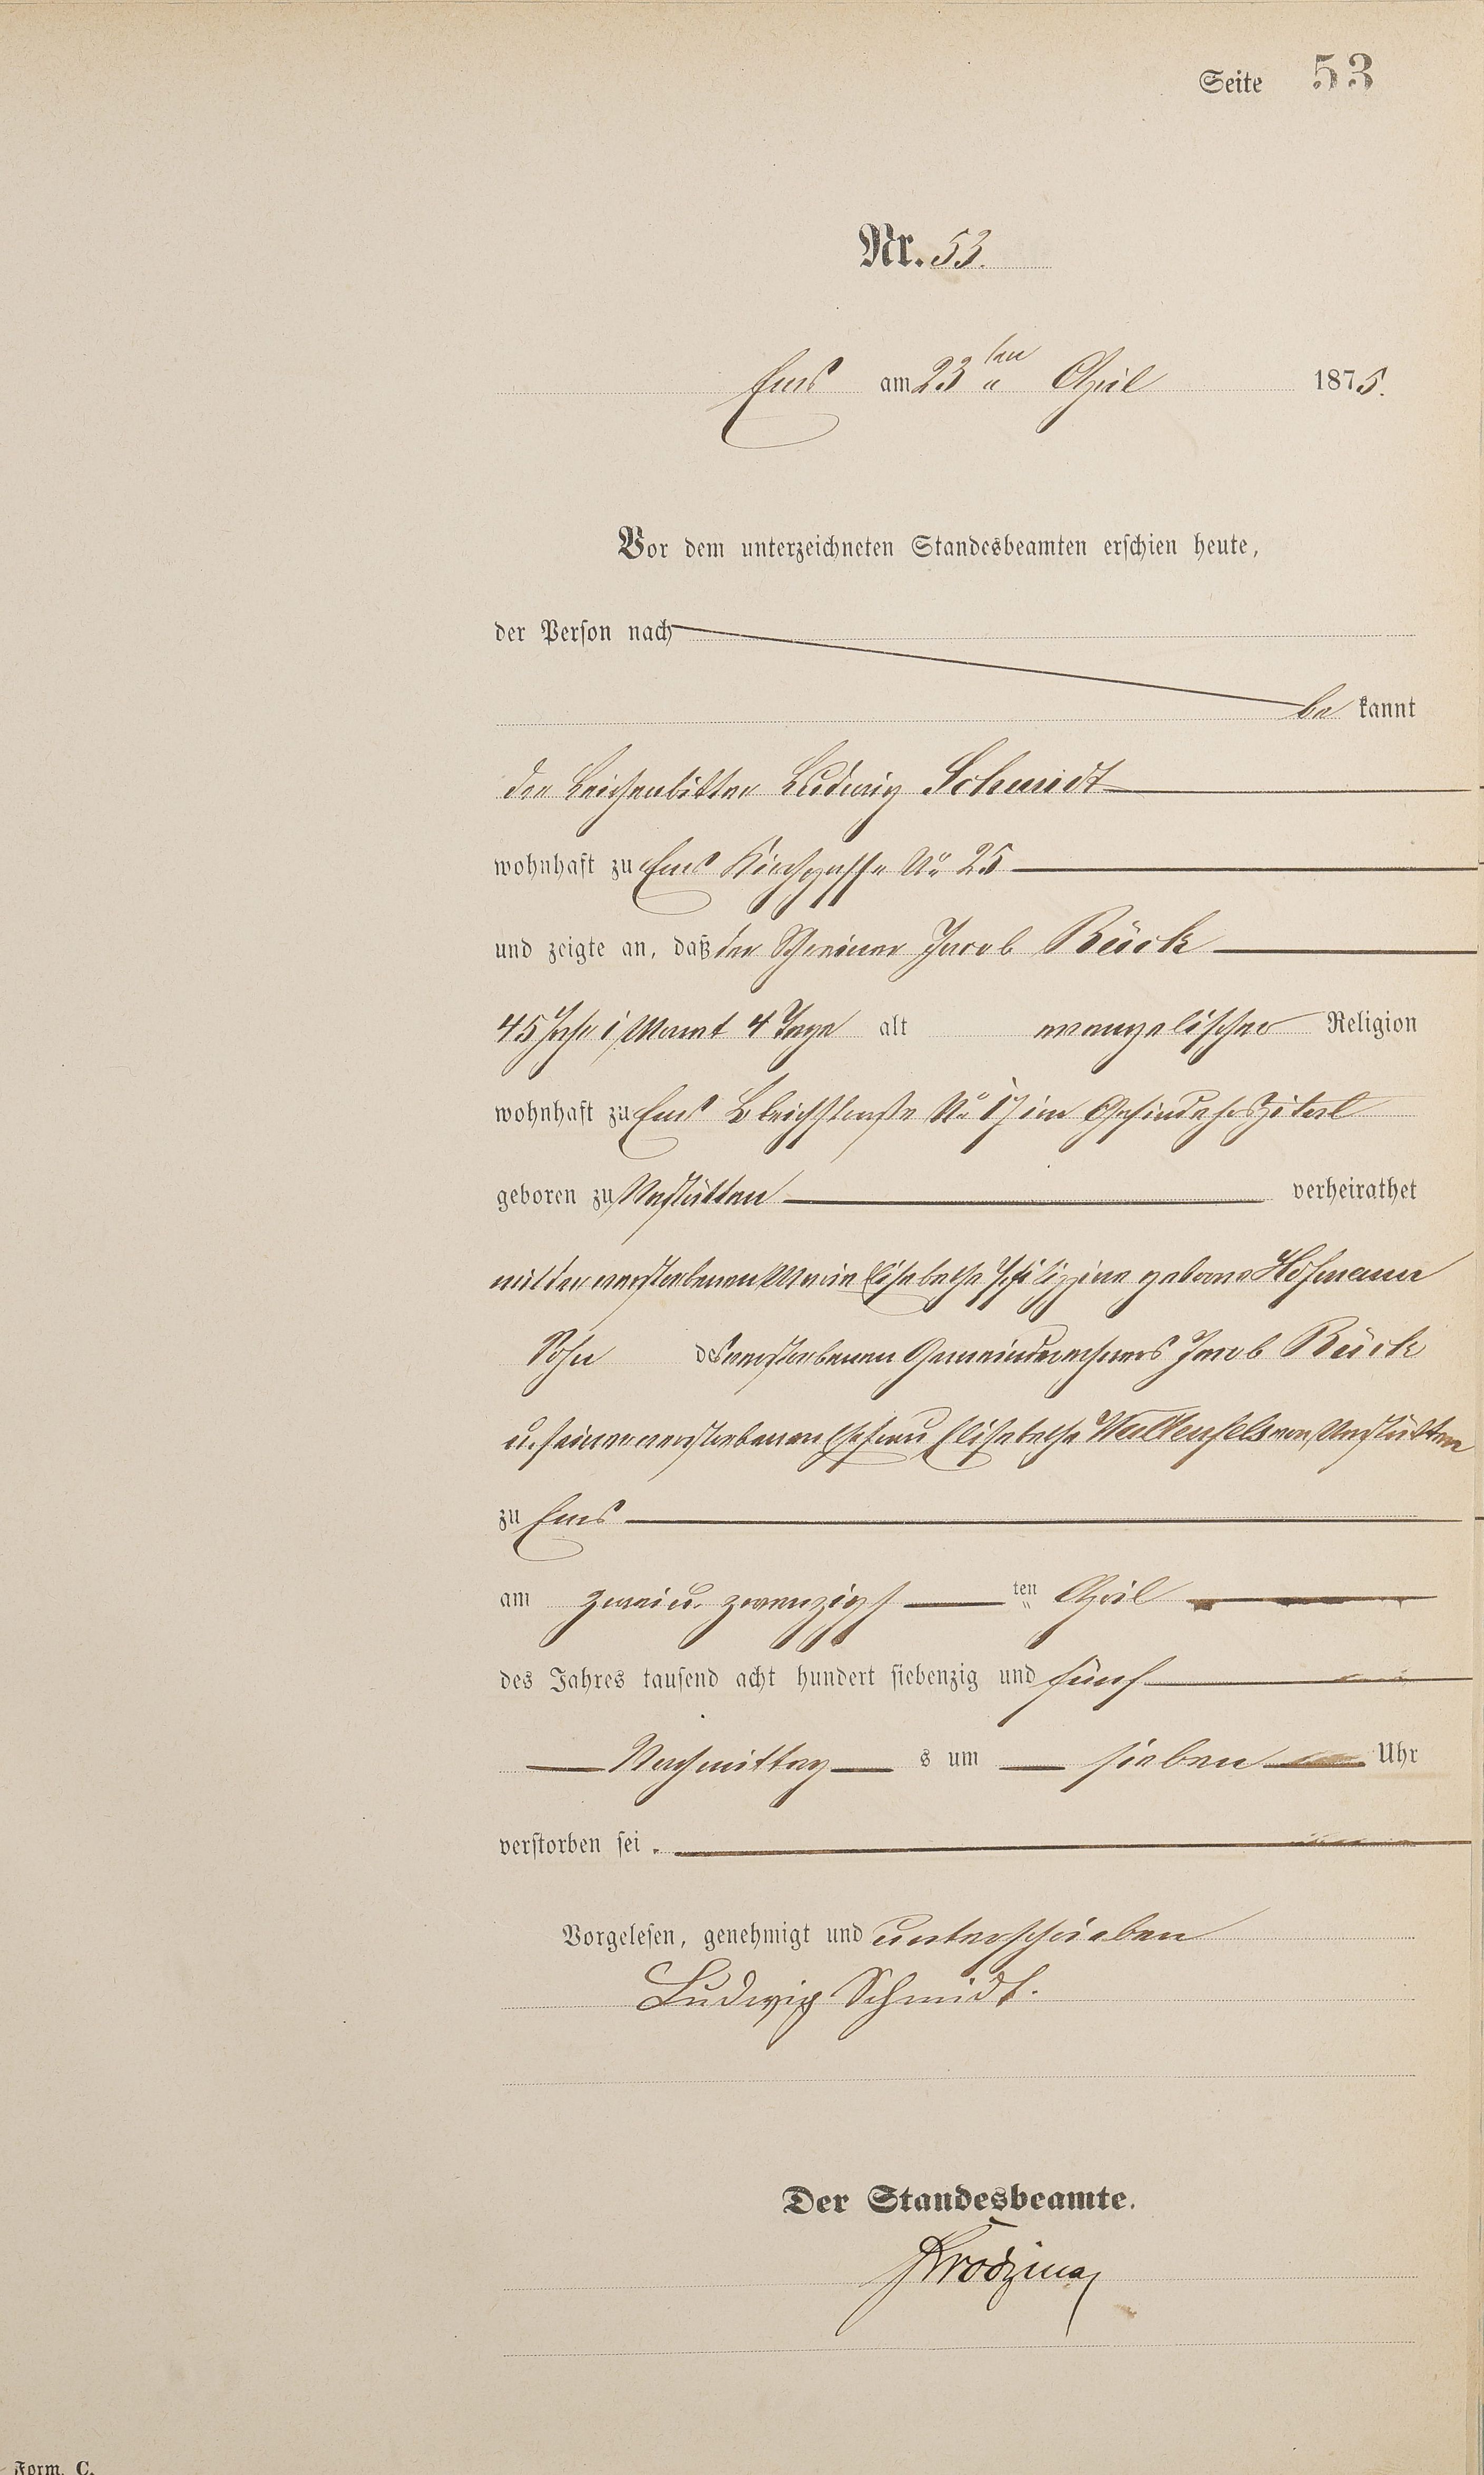 Seite 53
Nr. 53.
Ems am 23ten April 1875.
Vor dem unterzeichneten Standesbeamten erschien heute,
der Person nach
be kannt
der Leichenbitter Ludwig Schmidt
wohnhaft zu Ems Kirchgasse No 25
und zeigte an, daß der Schreiner Jacob Rück
45 Jahr 1 Monat 4 Tage alt evangelischer Religion
wohnhaft zu Ems Bleichstraße No 17 im Gesindehospital
geboren zu Nastätten verheirathet
mit der verstorbenen Marie Elisabethe Philippine geborne Hofmann
Sohn des verstorbenen Gemeinderechners Jacob Rück
u. seiner verstorbenen Ehefrau Elisabethe von Nastätten
zu Ems
am zwei u. zwanzigst ten April
des Jahres tausend acht hundert siebenzig und fünf
Nachmittag s um sieben Uhr
verstorben sei.
Vorgelesen, genehmigt und unterschrieben
Ludwig Schmidt.
Der Standesbeamte.
Form. C.